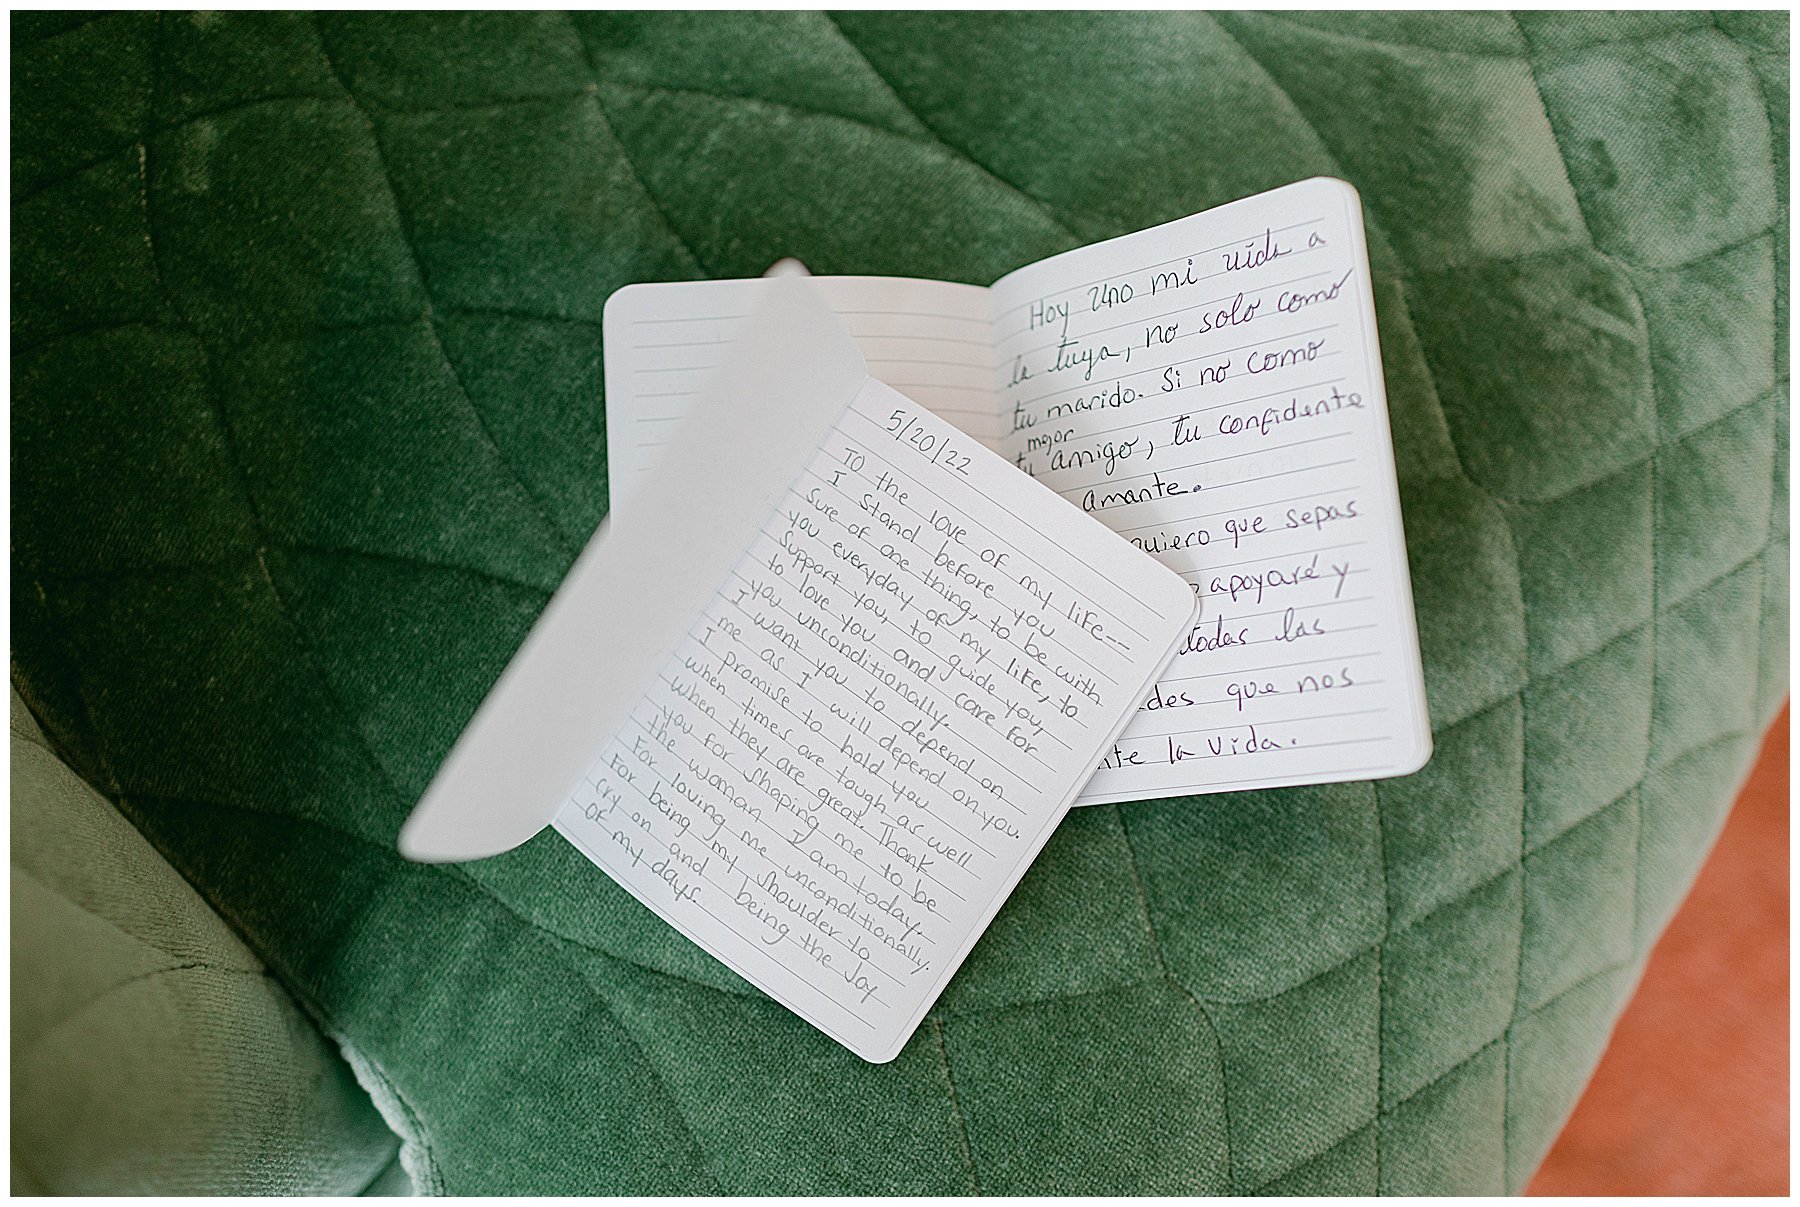 5/20/22
To the love of my life--
I stand before you
sure of one thing, to be with
you everyday of my life, to
support you, to guide you,
to love you and care for
you unconditionally.
I want you to depend on
me as I will depend on you.
I promise to hold you
when times are tough as well
when they are great. Thank
you for shaping me to be
the woman I am today.
For loving me unconditionally.
For being my shoulder to
cry on and being the Joy
of my days.
Hoy Uno mi vida a
la tuya, no solo como
tu marido. Si no como
mejor
tu amigo, tu confidente
amante.
quiero que sepas
apoyaré y
todas las
des que nos
nte la vida.